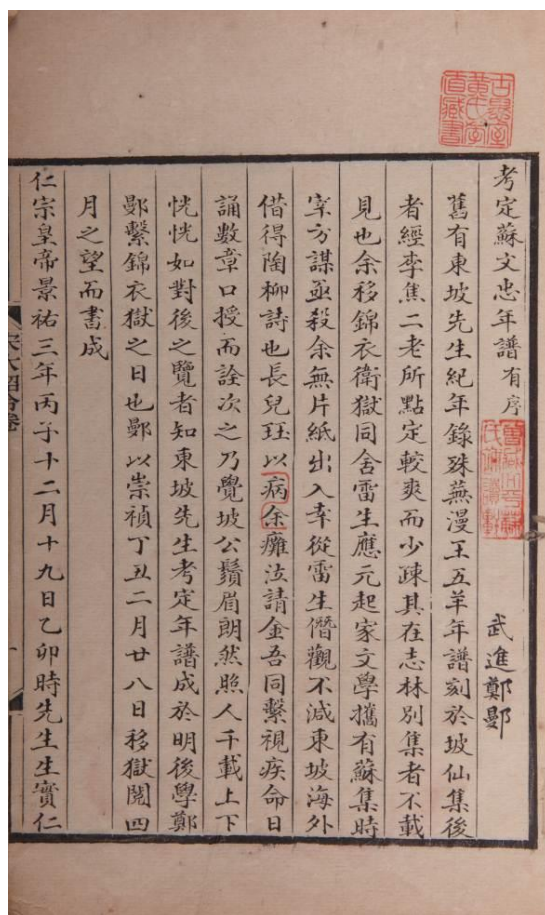 考定蘇文忠年譜有序
武進鄭鄤
舊有東坡先生紀年錄殊蕪漫王五羊年譜刻於坡仙集後
者經李焦二老所點定較爽而少疎其在志林別集者不載
見也余移錦衣衛獄同舍雷生應元起家文學攜有蘇集時
宰方謀亟殺余無片紙出入幸從雷生僭觀不減東坡海外
借得陶柳詩也長兒珏以病余癱泣請金吾同繫視疾命日
誦數章口授而詮次之乃覺坡公鬚眉朗然照人千載上下
恍恍如對後之覽者知東坡先生考定年譜成於明後學鄭
鄤繫錦衣獄之日也鄤以崇禎丁丑二月廿八日移獄閱四
月之望而書成
仁宗皇帝景祐三年丙子十二月十九日乙卯時先生生實仁